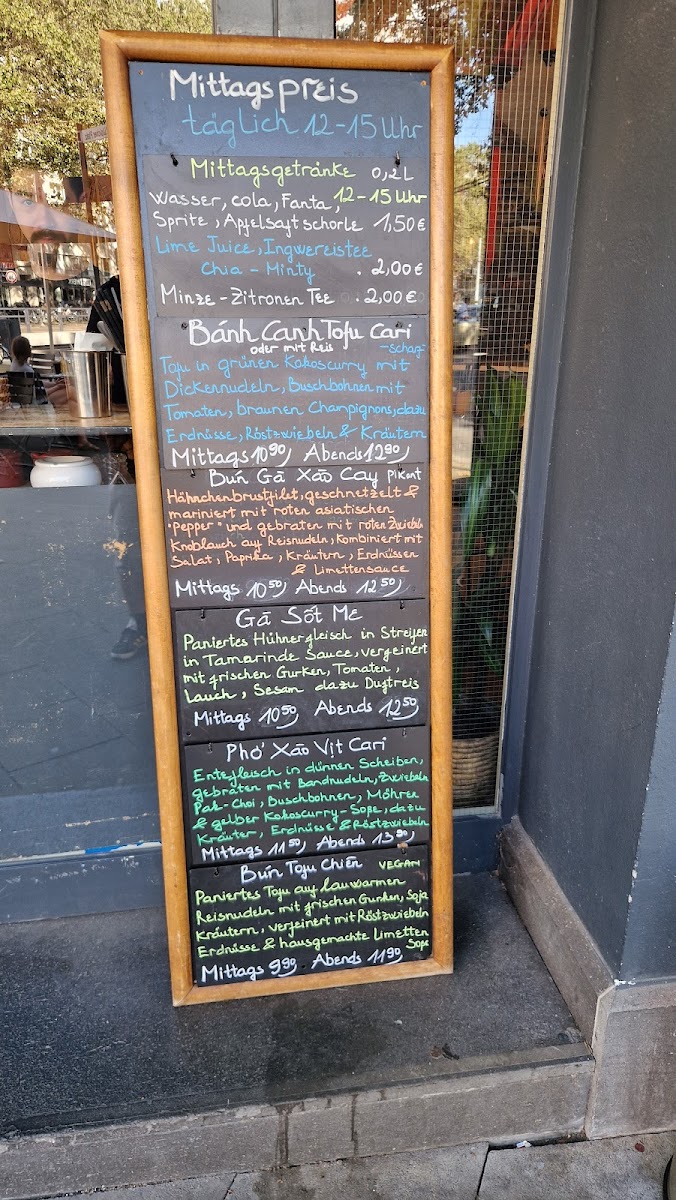 Mittagspreis
täglich 12-15 Uhr
Mittagsgetränke 0,2L
Wasser, cola, Fanta, 12-15 Uhr
Sprite, Apfelsaft schorle 1,50€
Lime Juice, Ingwereistee
Chia - Minty . 2,00€
Minze - Zitronen Tee . 2,00€
Bánh Canh Tofu Cari
oder mit Reis -scharf-
Tofu in grünen Kokoscurry mit
Dickennudeln, Buschbohnen mit
Tomaten, braunen Champignons, dazu
Erdnüsse, Röstzwiebeln & Kräutern
Mittags 10,90 Abends 12,90
Bún Gà Xào Cay Pikant
Hähnchenbrustfilet, geschnetzelt &
mariniert mit roten asiatischen
"Pepper" und gebraten mit roten Zwiebeln
Knoblauch auf Reisnudeln, Kombiniert mit
Salat, Paprika, Kräutern, Erdnüssen
& Limettensauce
Mittags 10,50 Abends 12,50
Gà Sốt Me
Paniertes Hühnerfleisch in Streifen
in Tamarinde Sauce, verfeinert
mit frischen Gurken, Tomaten,
Lauch, Sesam dazu Duftreis
Mittags 10,50 Abends 12,50
Phở Xào Vịt Cari
Entefleisch in dünnen Scheiben,
gebraten mit Bandnudeln, Zwiebeln
Pak-Choi, Buschbohnen, Möhren
& gelber Kokoscurry-Soße, dazu
Kräuter, Erdnüsse & Röstzwiebeln
Mittags 11,50 Abends 13,90
Bún Tofu Chiên VEGAN
Paniertes Tofu auf lauwarmen
Reisnudeln mit frischen Gurken, Soja
Kräutern, verfeinert mit Röstzwiebeln
Erdnüsse & hausgemachte Limetten
Soße
Mittags 9,90 Abends 11,90